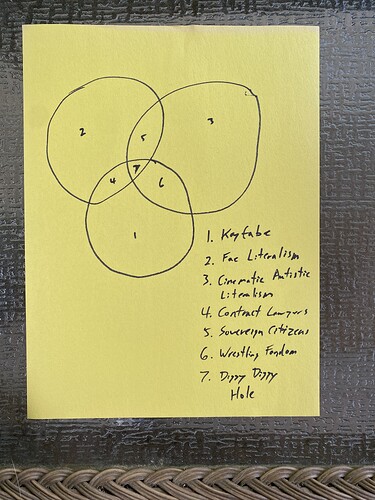 2
3
5
7
4
6
1
1. Kayfabe
2. Fae Literalism
3. Cinematic Autistic
Literalism
4. Contract Lawyers
5. Sovereign Citizens
6. Wrestling Fandom
7. Diggy Diggy
Hole